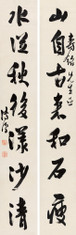 山自古來和石瘦
壽銘先生正
水從秋後漾沙清